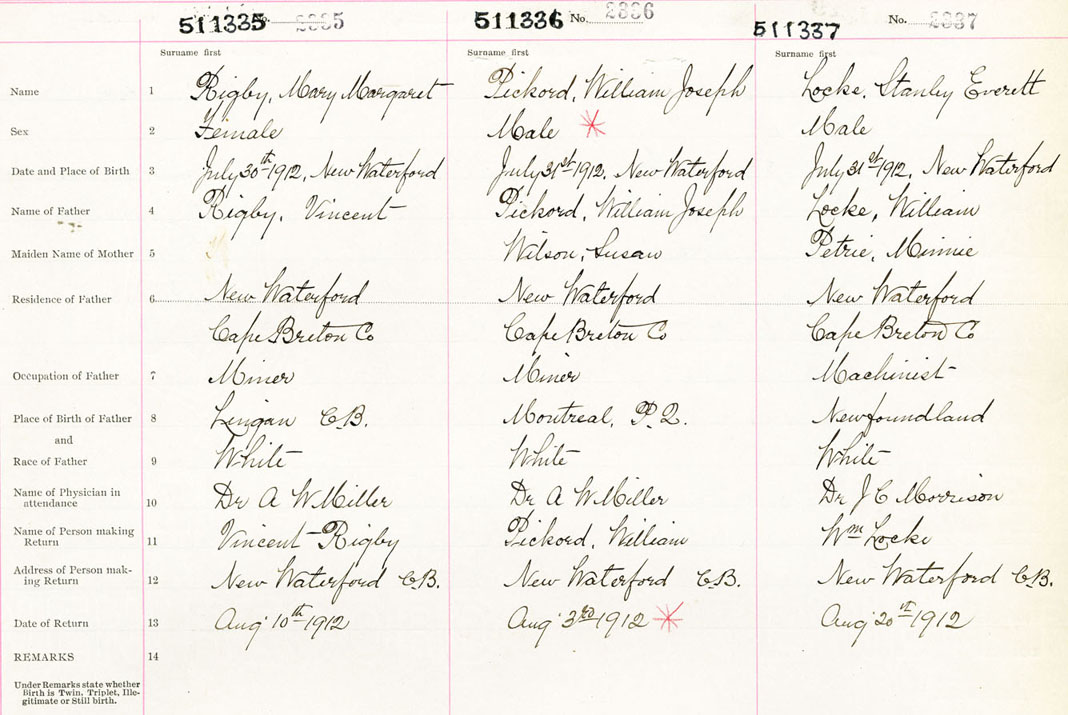 511335 No. 2335 511336 No. 2336 511337 No. 2337
Surname first Surname first Surname first
Name 1 Rigby, Mary Margaret Pickord, William Joseph Locke, Stanley Everett
Sex 2 Female Male * Male
Date and Place of Birth 3 July 30th 1912, New Waterford July 31st 1912, New Waterford July 31st 1912, New Waterford
Name of Father 4 Rigby, Vincent Pickord, William Joseph Locke, William
Maiden Name of Mother 5 Wilson, Susan Petrie, Minnie
Residence of Father 6 New Waterford New Waterford New Waterford
Cape Breton Co Cape Breton Co Cape Breton Co
Occupation of Father 7 Miner Miner Machinist
Place of Birth of Father 8 Lingan C.B. Montreal, P.Q. Newfoundland
and
Race of Father 9 White White White
Name of Physician in
attendance 10 Dr A W Miller Dr A W Miller Dr J C Morrison
Name of Person making
Return 11 Vincent Rigby Pickord, William Wm Locke
Address of Person mak-
ing Return 12 New Waterford C.B. New Waterford C.B. New Waterford C.B.
Date of Return 13 Aug 10th 1912 Aug 3rd 1912 * Aug 20th 1912
REMARKS 14
Under Remarks state whether
Birth is Twin, Triplet, Ille-
gitimate or Still birth.